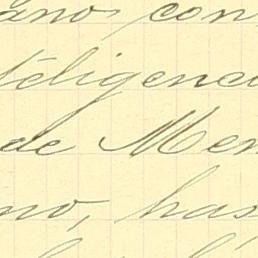 ano, con
téligenci
de Men
no, has